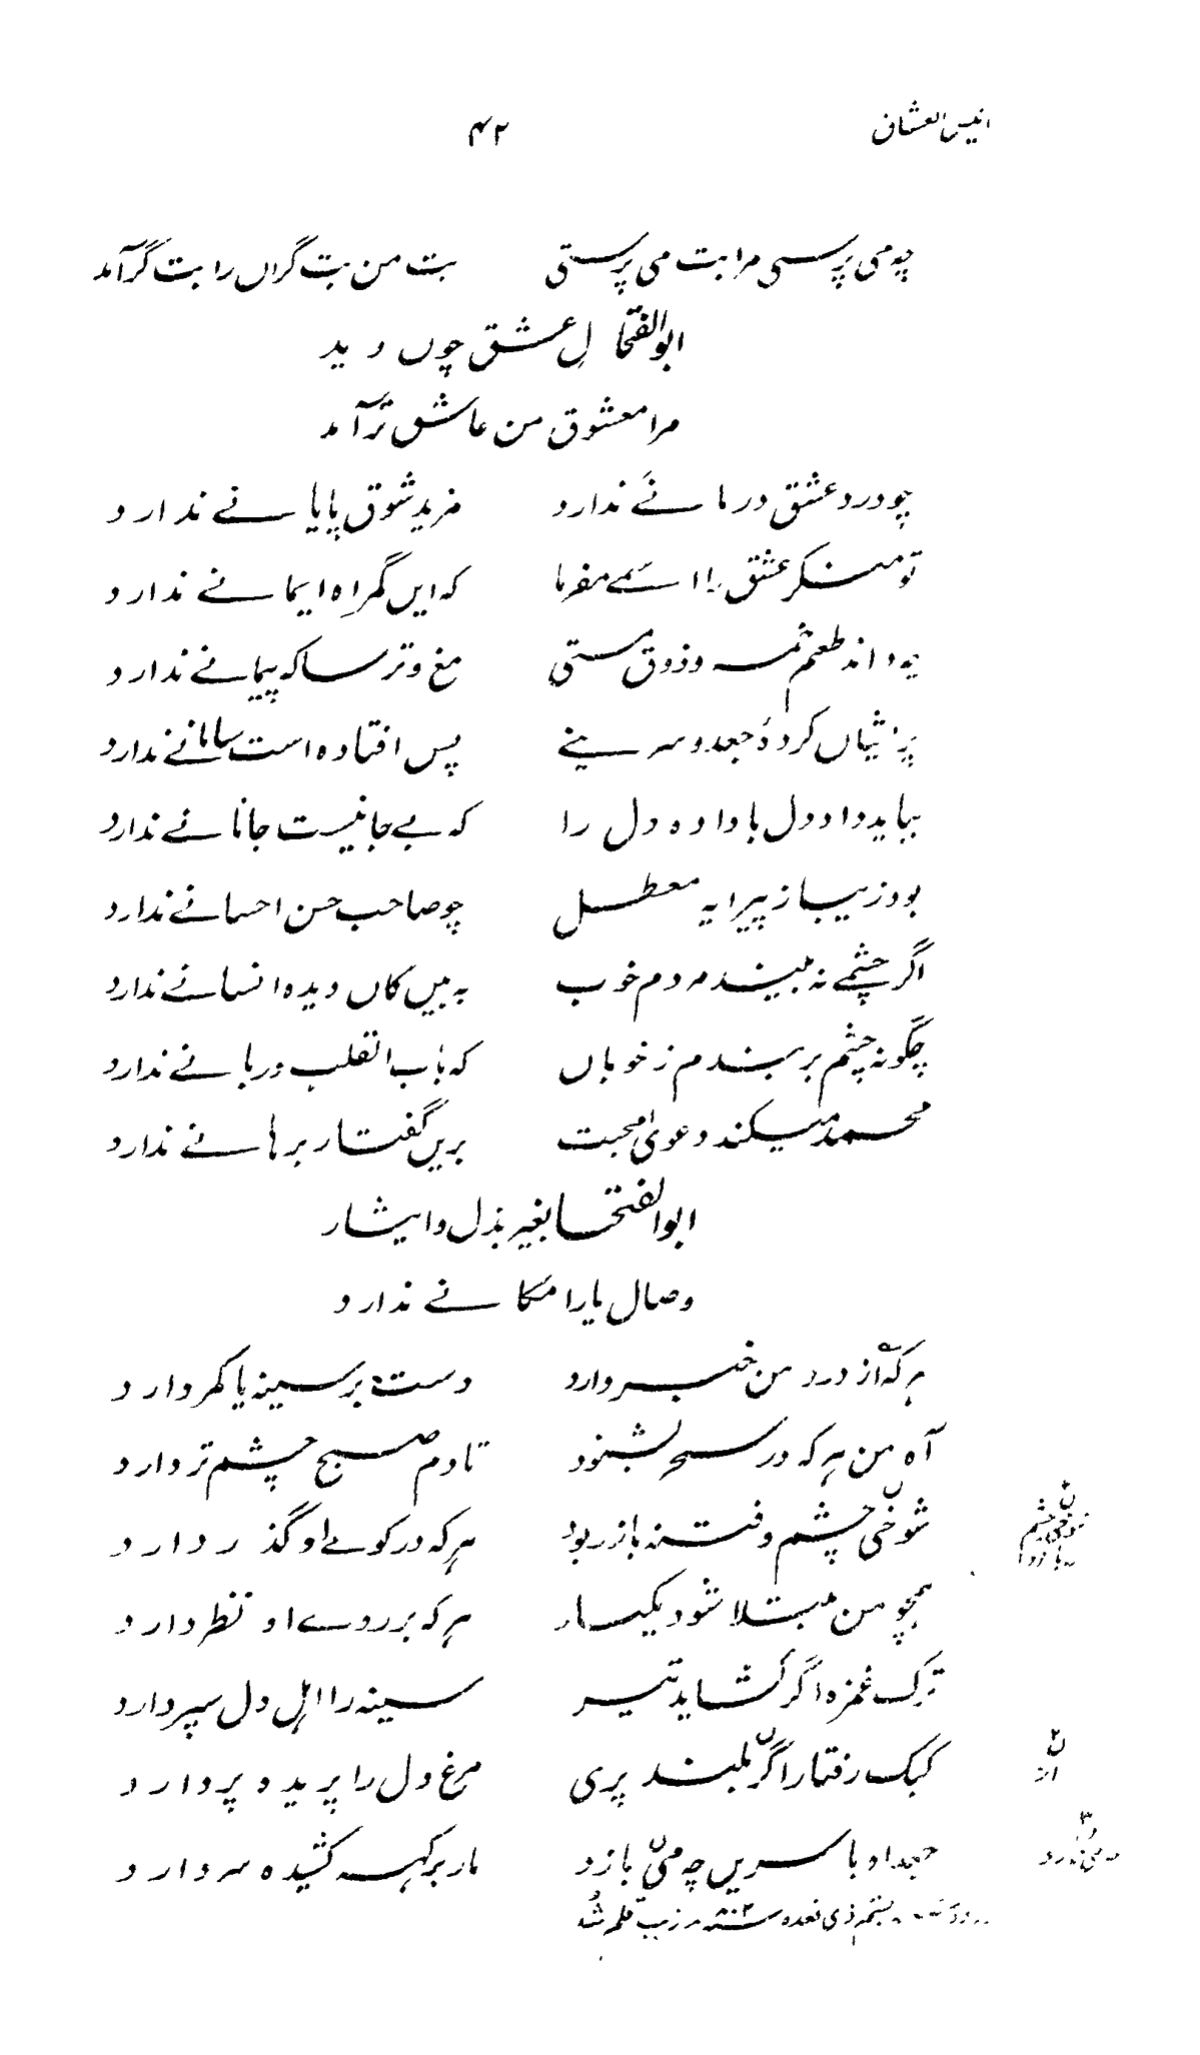 انیس العشاق ۴۲
چه می پرسی مرا بت می پرستی بت من بت گراں را بت گر آمد
ابوالفتحا لِ عشق چوں دید
مرا معشوق من عاشق تر آمد
چو درد عشق درمانے ندارد مزید شوق پایانے ندارد
تو منکر عشق را اسمے مفرما که ایں گمراه ایمانے ندارد
چه داند طعم خمر و ذوق مستی مغ و ترسا که پیمانے ندارد
پریشاں کردۂ جعد و سرینے پس افتاده است سامانے ندارد
بباید داد دل با داده دل را که بے جانیست جانانے ندارد
بود زیبا ز پیرایه معطل چو صاحب حسن احسانے ندارد
اگر چشمے نه بیند مردم خوب به بیں کاں دیده انسانے ندارد
چگونه چشم بر بندم ز خوباں که باب القلب دربانے ندارد
محمد میکند دعویٰ محبت بریں گفتار برهانے ندارد
ابوالفتحا بغیر بذل و ایثار
وصال یار امکانے ندارد
هر که از درد من خبر دارد دست بر سینه یا کمر دارد
آه من هر که در سحر بشنود تا دم صبح چشم تر دارد
شوخی چشم و فتنه باز ربود هر که در کوے او گذر دارد
همچو من مبتلا شود یکبار هر که بر روے او نظر دارد
ترک غمزه اگر کشاید تیر سینه را اهل دل سپر دارد
کبک رفتار اگر بلند پری مرغ دل را پریده پر دارد
جعد او با سریں چه می بازد مار بر کہسہ کشیده سر دارد
ن
شوخی چشم
ن۲
از
ن۳
ذی قعده سنه ۸۰۲ قلم شد